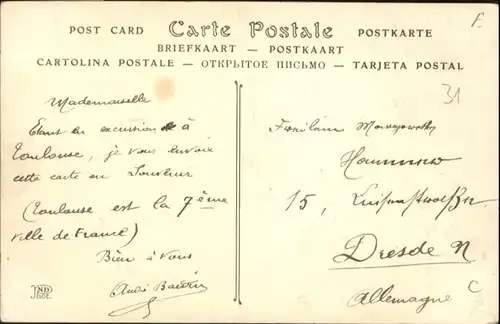 F.
POST CARD Carte Postale POSTKARTE
BRIEFKAART — POSTKAART
CARTOLINA POSTALE — ОТКРЫТОЕ ПИСЬМО — TARJETA POSTAL
31
Mademoiselle
Etant en excursion à
Toulouse, je vous envoie
cette carte en Souvenir
(Toulouse est la 7ème
ville de France)
Bien à Vous
André
ND
Phot.
Fraülein
15,
Dresde N
Allemagne
C